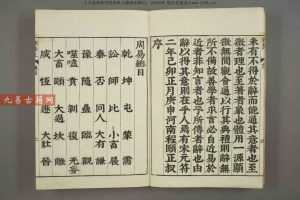 未有不得於辭而能通其意者也至
微者理也至著者象也體用一源顯
微無間觀會通以行其典禮則辭無
所不備故善學者求言必自近易於
近者非知言者也予所傳者辭也由
辭以得其意則在乎人焉有宋元符
二年己卯正月庚申河南程頤正叔
序
周易總目
乾 坤 屯 蒙 需
訟 師 比 小畜 履
泰 否 同人 大有 謙
豫 隨 蠱 臨 觀
噬嗑 賁 剝 復 无妄
大畜 頤 大過 坎 離
咸 恆 遯 大壯 晉
九易古籍网